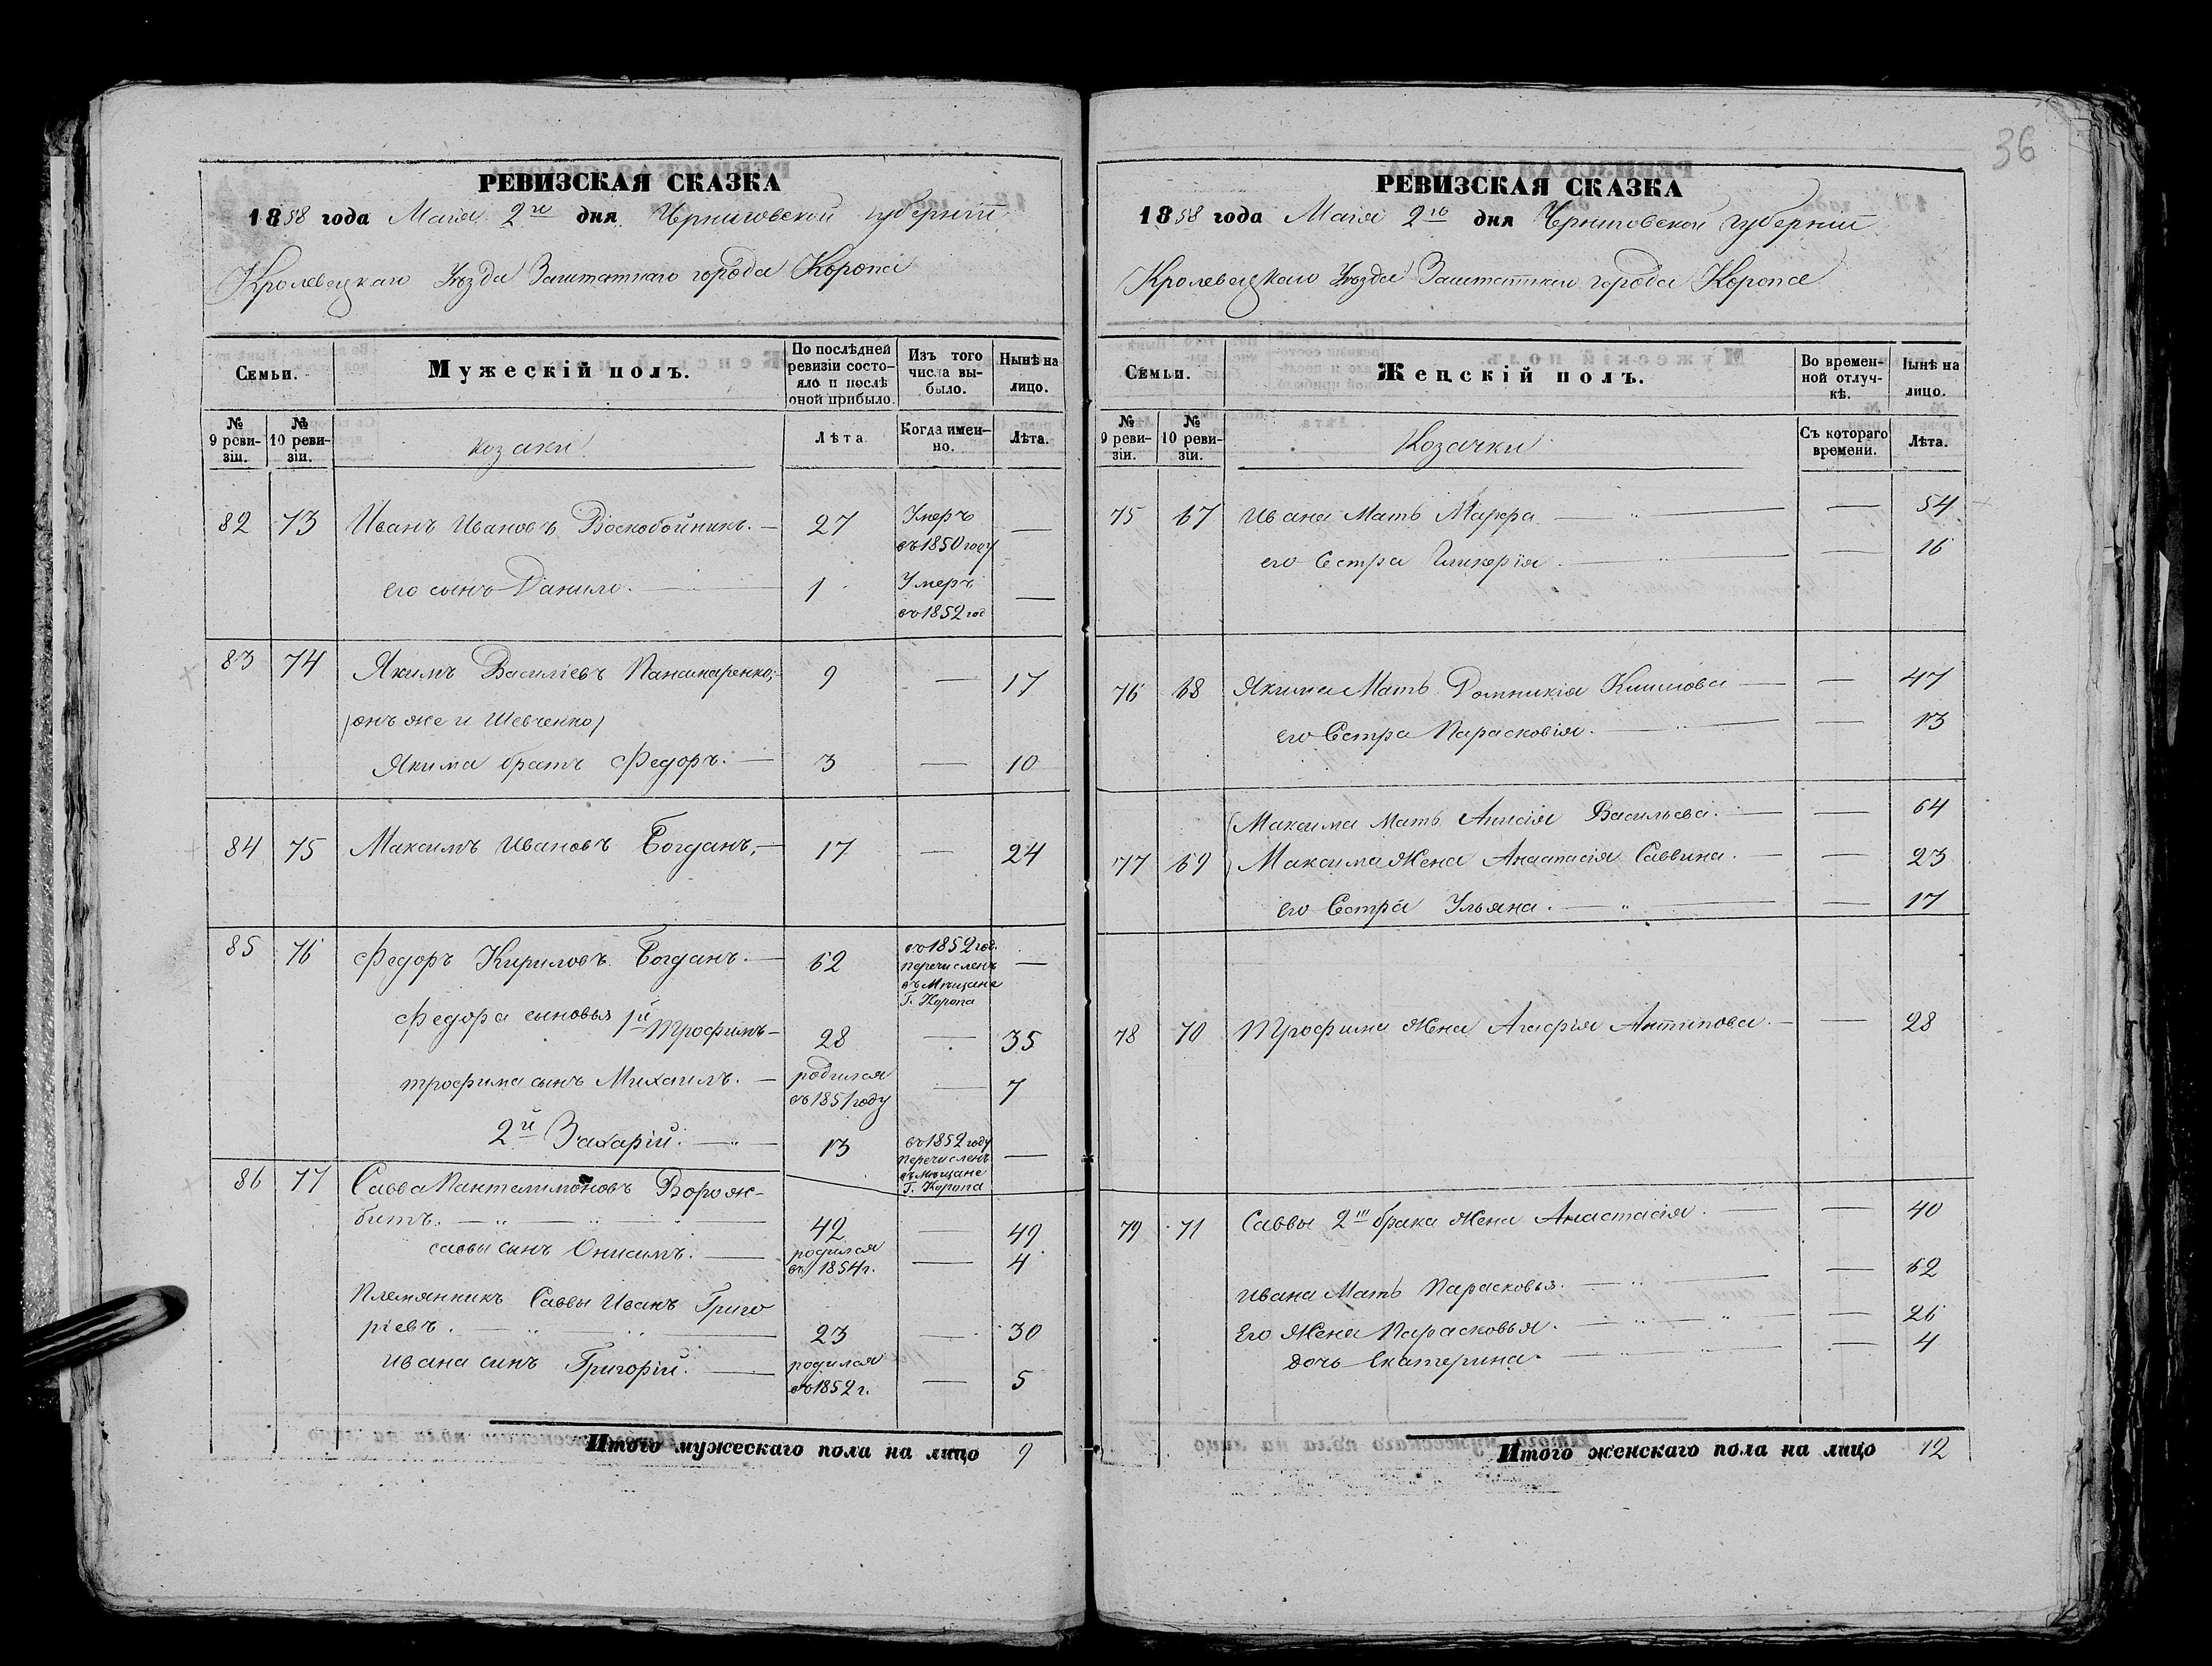 36
РЕВИЗСКАЯ СКАЗКА
1858 года Маія 2го дня Черниговской губерніи
Кролевецкаго Уѣзда Заштатнаго города Коропа
Семьи.
Мужескій полъ.
По послѣдней ревизіи состояло и послѣ оной прибыло.
Изъ того числа выбыло.
Нынѣ на лицо.
№ 9 ревизіи.
№ 10 ревизіи.
козаки
Лѣта
Когда именно.
Лѣта.
82 73 Иванъ Ивановъ Воскобойникъ. — 27 Умеръ въ 1850 году —
его сынъ Данило. — 1 Умеръ въ 1852 год —
83 74 Якимъ Василіевъ Панамаренко, 9 — 17
(онъ же и Шевченко)
Якима братъ Федоръ. — 3 — 10
84 75 Максимъ Ивановъ Богданъ, — 17 — 24
85 76 Федоръ Кириловъ Богданъ. — 62 въ 1852 год. перечисленъ въ Мѣщане Г. Коропа —
Федора сыновья 1й Трофимъ — 28 — 35
трофима сынъ Михаилъ. — родился въ 1851 году — 7
2й Захарій. — 13 въ 1852 году перечисленъ въ мѣщане Г. Коропа —
86 77 Савва Пантелимоновъ Ворож-
битъ. — 42 — 49
саввы сынъ Онисимъ. — родился въ 1854 г. — 4
Племянникъ Саввы Иванъ Григо
ріевъ. — 23 — 30
ивана синъ Григорій. — родился въ 1852 г. — 5
Итого мужескаго пола на лицо 9
РЕВИЗСКАЯ СКАЗКА
1858 года Маія 2го дня Черниговской губерніи
Кролевецкаго Уѣзда Заштатнаго города Коропа
Семьи.
Женскій полъ.
Во временной отлучкѣ.
Нынѣ на лицо.
№ 9 ревизіи.
№ 10 ревизіи.
Козачки
Съ котораго времени.
Лѣта.
75 67 Ивана Мать Марфа — — 54
его Сестра Гликерія. — — 16
76 68 Якима Мать Домникія Климова — — 47
его Сестра Парасковія. — — 13
Максима Мать Анисія Васильева. — — 64
77 69 Максима Жена Анастасія Саввина. — — 23
его Сестра Ульяна. — — 17
78 70 Трофима Жена Агафія Антипова. — — 28
79 71 Саввы 2го брака Жена Анастасія. — — 40
Ивана Мать Парасковья. — — 62
Его Жена Парасковья. — — 26
дочь Екатерина. — — 4
Итого женскаго пола на лицо 12